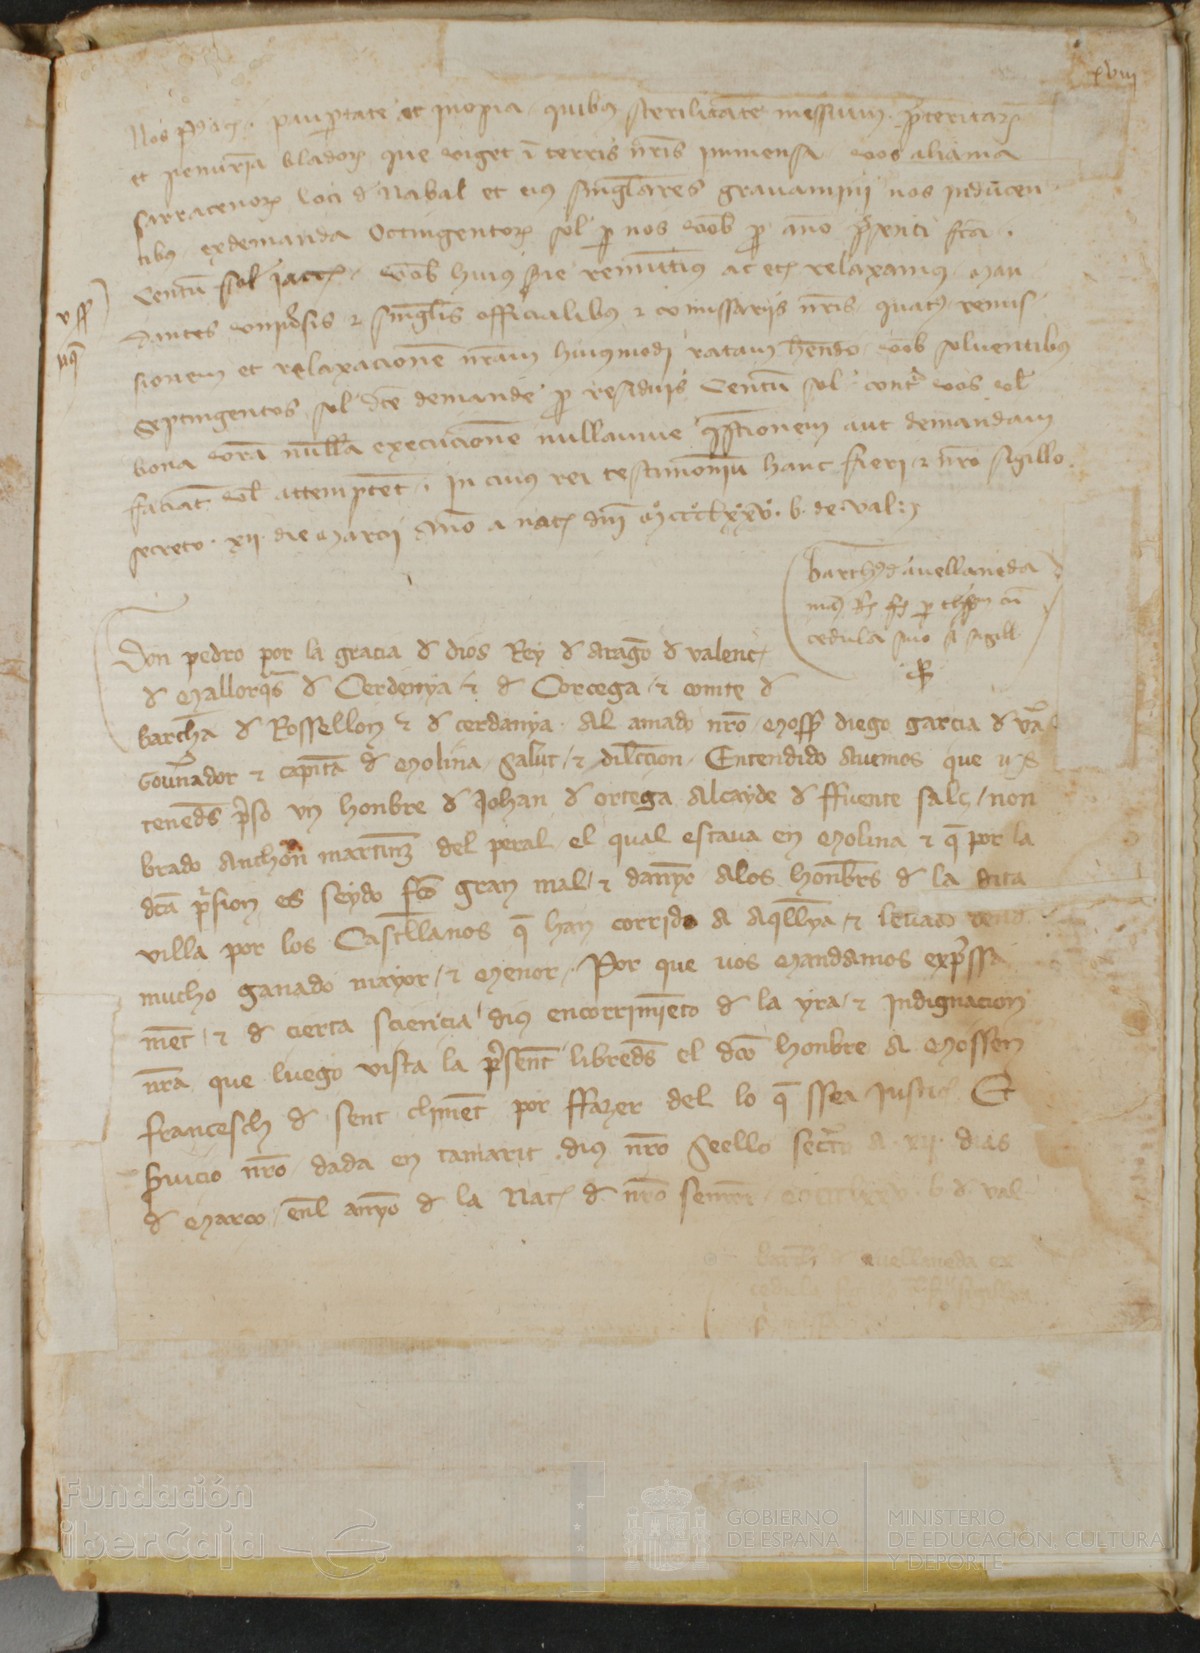 xviii
Nos Petrus etc. paupertate et inopia quibus sterilitate messium preteritarum
et penuria bladorum que viget in terris nostris inmensa vos aliama
sarracenorum loci de Nabal et eius singulares gravamini nos inducen
tibus ex demanda Octingentorum sol per nos vobis pro anno presenti facta
Centum sol jaccenses vobis huius serie remittimus ac etiam relaxamus Man
dantes universis et singulis officialibus et comissariis nostris quatenus remis
sionem et relaxacionem nostram huiusmodi ratam habendo vobis solventibus
Septingentos sol dicte demande pro residuis Centum sol contra vos vel
bona vestra nullam execucionem nullamve questionem aut demandam
faciant vel attemptent in cuius rei testimonium hanc fieri et nostro sigillo
secreto xii die Marcii Anno a nat dni Mcccclxxv b. de val
barthus d avellaneda
cedula suo sigill
Don pedro por la gracia de dios Rey de aragon de valenc
de Mallorqs de Cerdenya et de Corcega et comte de
barchna de Rossellon et de cerdanya Al amado nro Mossen diego garcia de vera
Governador et capitan de Molina Salut et dileccion Entendido Avemos que vos
teneds preso un honbre de Johan de ortega Alcayde de ffuente salz non
brado Anthon martinez del peral el qual estava en Molina et que por la
dca presion es seydo fco gran mal et danyo Alos honbres de la dita
villa por los Castellanos que han corrido A Aquellya et levado
mucho ganado mayor et Menor Por que vos Mandamos expressa
ment et de cierta sciencia dius encorrimiento de la yra et indignacion
nra que luego vista la present libreds el dco honbre A Mossen
francesch de sent climent por ffazer del lo que ssea justic Et
servicio nro dada en tamarit dius nro Seello secreto A xii dias
de Março enl anyo de la Nat de nro senyor b de val
avellaneda
cedula
Fundación
iberCaja
GOBIERNO
DE ESPAÑA
MINISTERIO
DE EDUCACIÓN, CULTURA
Y DEPORTE